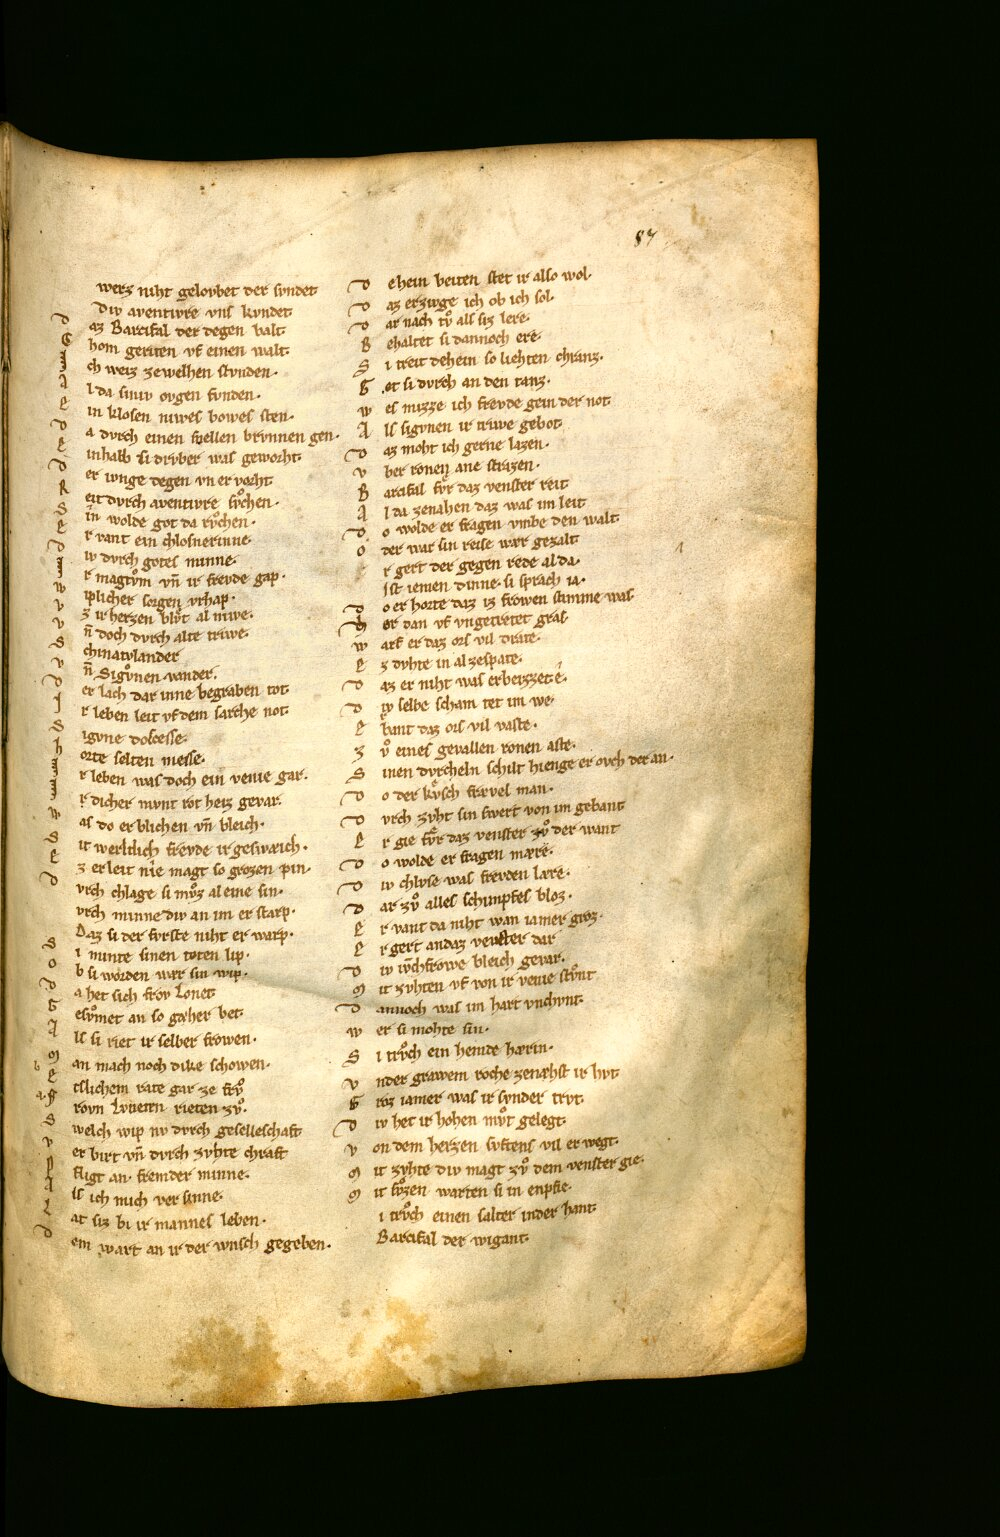 87
werz niht gelovbet der svndet
Div aventivre vns kvndet
Daz Barcifal der degen balt
Chom geriten vf einen walt
Ich weiz zewelhen stvnden·
Al da siniv ovgen fvnden·
Ein klosen niwes bowes sten·
Da dvrch einen snellen brvnnen gen·
Einhalb si drvber was geworht
Der ivnge degen vnervorht
Reit dvrch aventivre svͦchen·
Sin wolde got da rvͦchen·
Er vant ein chlosnerinne
Div dvrch gotes minne·
Ir magtvͦm vn̄ ir frevde gap·
Wiplicher sorgen vrhap·
Vz ir herzen blvͤt al niwe·
Vn̄ doch dvrch alte triwe·
Schinatvlander
Vn̄ Sigvͦnen vander·
Der lach dar inne begraben tot
Ir leben leit vf dem sarche not
Sigvne doscesse·
Horte selten messe·
Ir leben was doch ein venie gar·
Ir dicher mvnt rot heiz gevar
Was do er blichen vn̄ bleich·
Sit werltlich frevde ir gesweich·
Ez erleit nie magt so grozen pin·
Dvrch chlage si mvͦz aleine sin·
dvrch minne div an im er starp·
Daz si der fvrste niht er warp·
Si minte sinen toten lip·
Ob si worden wær sin wip·
Da het sich frov Lonet
Gesvͦmet an so gæher bet
Als si riet ir selber frowen·
Man mach noch dike schowen·
Etslichem rate gar ze frvͦ
frovn Lvneten rieten zvͦ·
Swelch wip nv dvrch geselleschaft
Verbirt vn̄ dvrch zvhte chraft
Pfligt an· fremder minne·
Als ich mich ver sinne·
Lat siz bi ir mannes leben·
Dem wart an ir der wnsch gegeben·
Dehein beiten stet ir also wol·
Daz erzivge ich ob ich sol·
Dar nach tvͦ als siz lere·
Behaltet si dannoch ere·
Si treit dehein so liehten chranz·
Get si dvrch an den tanz·
Wes mizze ich frevde gein der not
Als sigvnen ir triwe gebot
Daz moht ich gerne lazen·
Vber ronen ane strazen·
Barcifal fvͤr daz venster reit
Al da zenahen daz was im leit
Do wolde er fragen vmbe den walt
Oder war sin reise wær gezalt
Er gert der gegen rede alda·
Jst iemen dinne· si sprach ia·
Do er horte daz iz frowen stimme was·
Her dan vf vngetretet gras·
Warf er daz ors vil drate·
Ez dvhte in al zespate·
Daz er niht was erbeizzet é·
Div selbe scham tet im we·
Er bant daz ors vil vaste·
Zvͦ eines gevallen ronen aste·
Sinen dvrcheln schilt hienge er ovch der an·
Do der kvͤsch frævel man·
Dvrch zvht sin swert von im gebant
Er gie fvͤr daz venster zvͦ der want
Do wolde er fragen mære·
Div chlvse was frevden lære·
Dar zvͦ alles schimpfes bloz·
Er vant da niht wan iamer groz·
Er gert an daz venster dar
Div ivͦchfrowe bleich gevar·
Mit zvhten vf von ir venie stvͦnt
Dannoch was im hart vnchvnt·
Wer si mohte sin·
Si trvͦch ein hemde hærin·
Vnder grawem roche zenæhst ir hvt
Groz iamer was ir svnder trvt·
Div het ir hohen mvͦt gelegt·
Von dem herzen svftens vil erwegt·
Mit zvhte div magt zvͦ dem venster gie·
Mit svͦzen warten si in enpfie·
i trvͦch einen salter inder hant
Barcifal der wigant